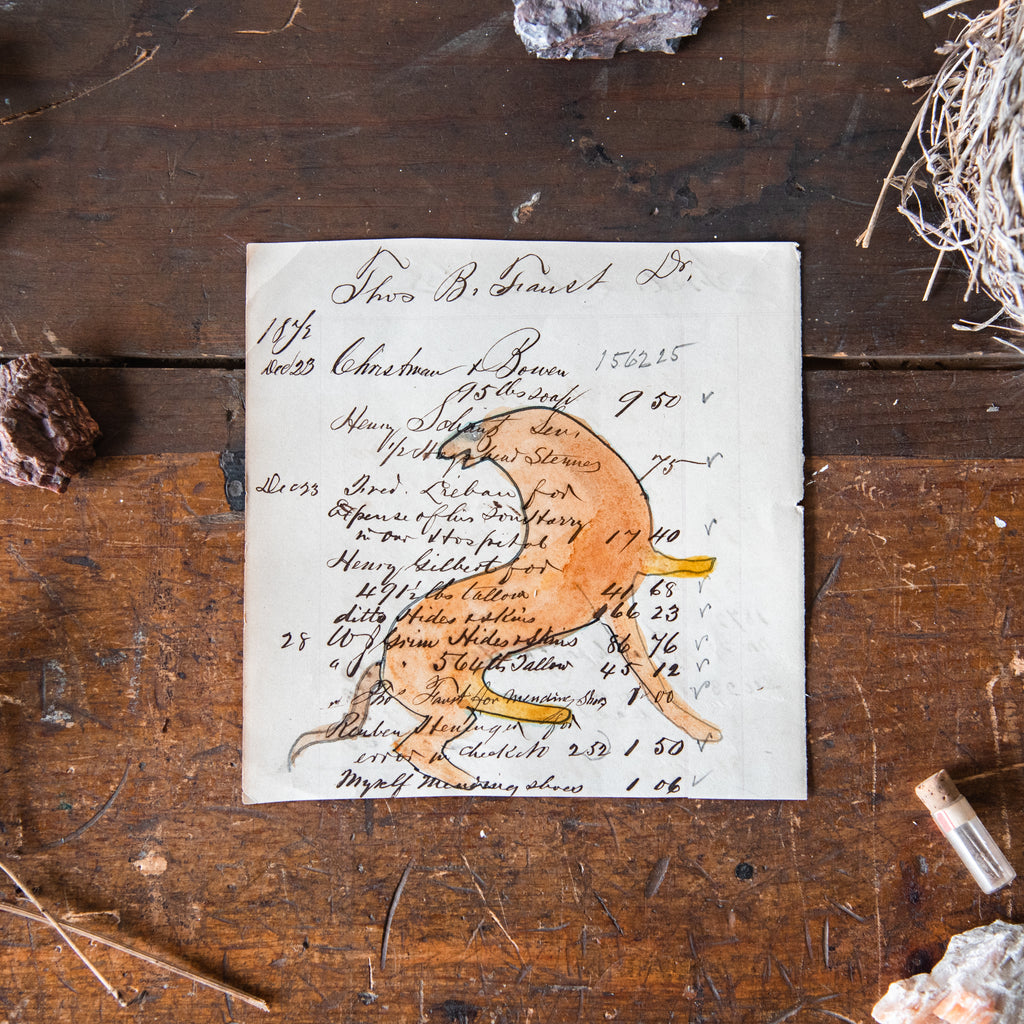 Thos B. Faust Dr.
18
Dec 23 Christman & Bowen 156225
95 lbs soap 9 50
Henry Schantz Sen.
1 1/2 75
Dec 23 Fred. Lieban for
Expense of his
in our Hospital 17 40
Henry Gilbert for
491 1/2 lbs Tallow 41 68
ditto Hides & skins 166 23
28 W J Grim Hides & Skins 86 76
" " 564 lbs Tallow 45 12
" Tho Faust for Mending Shoes 1 00
Reuben for
error in check No 252 1 50
Myself Mending shoes 1 06